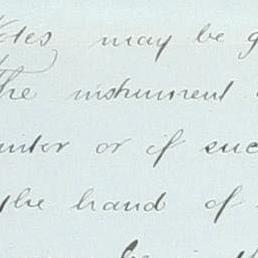 Notes may be g
The instrument
or if suc
the hand of